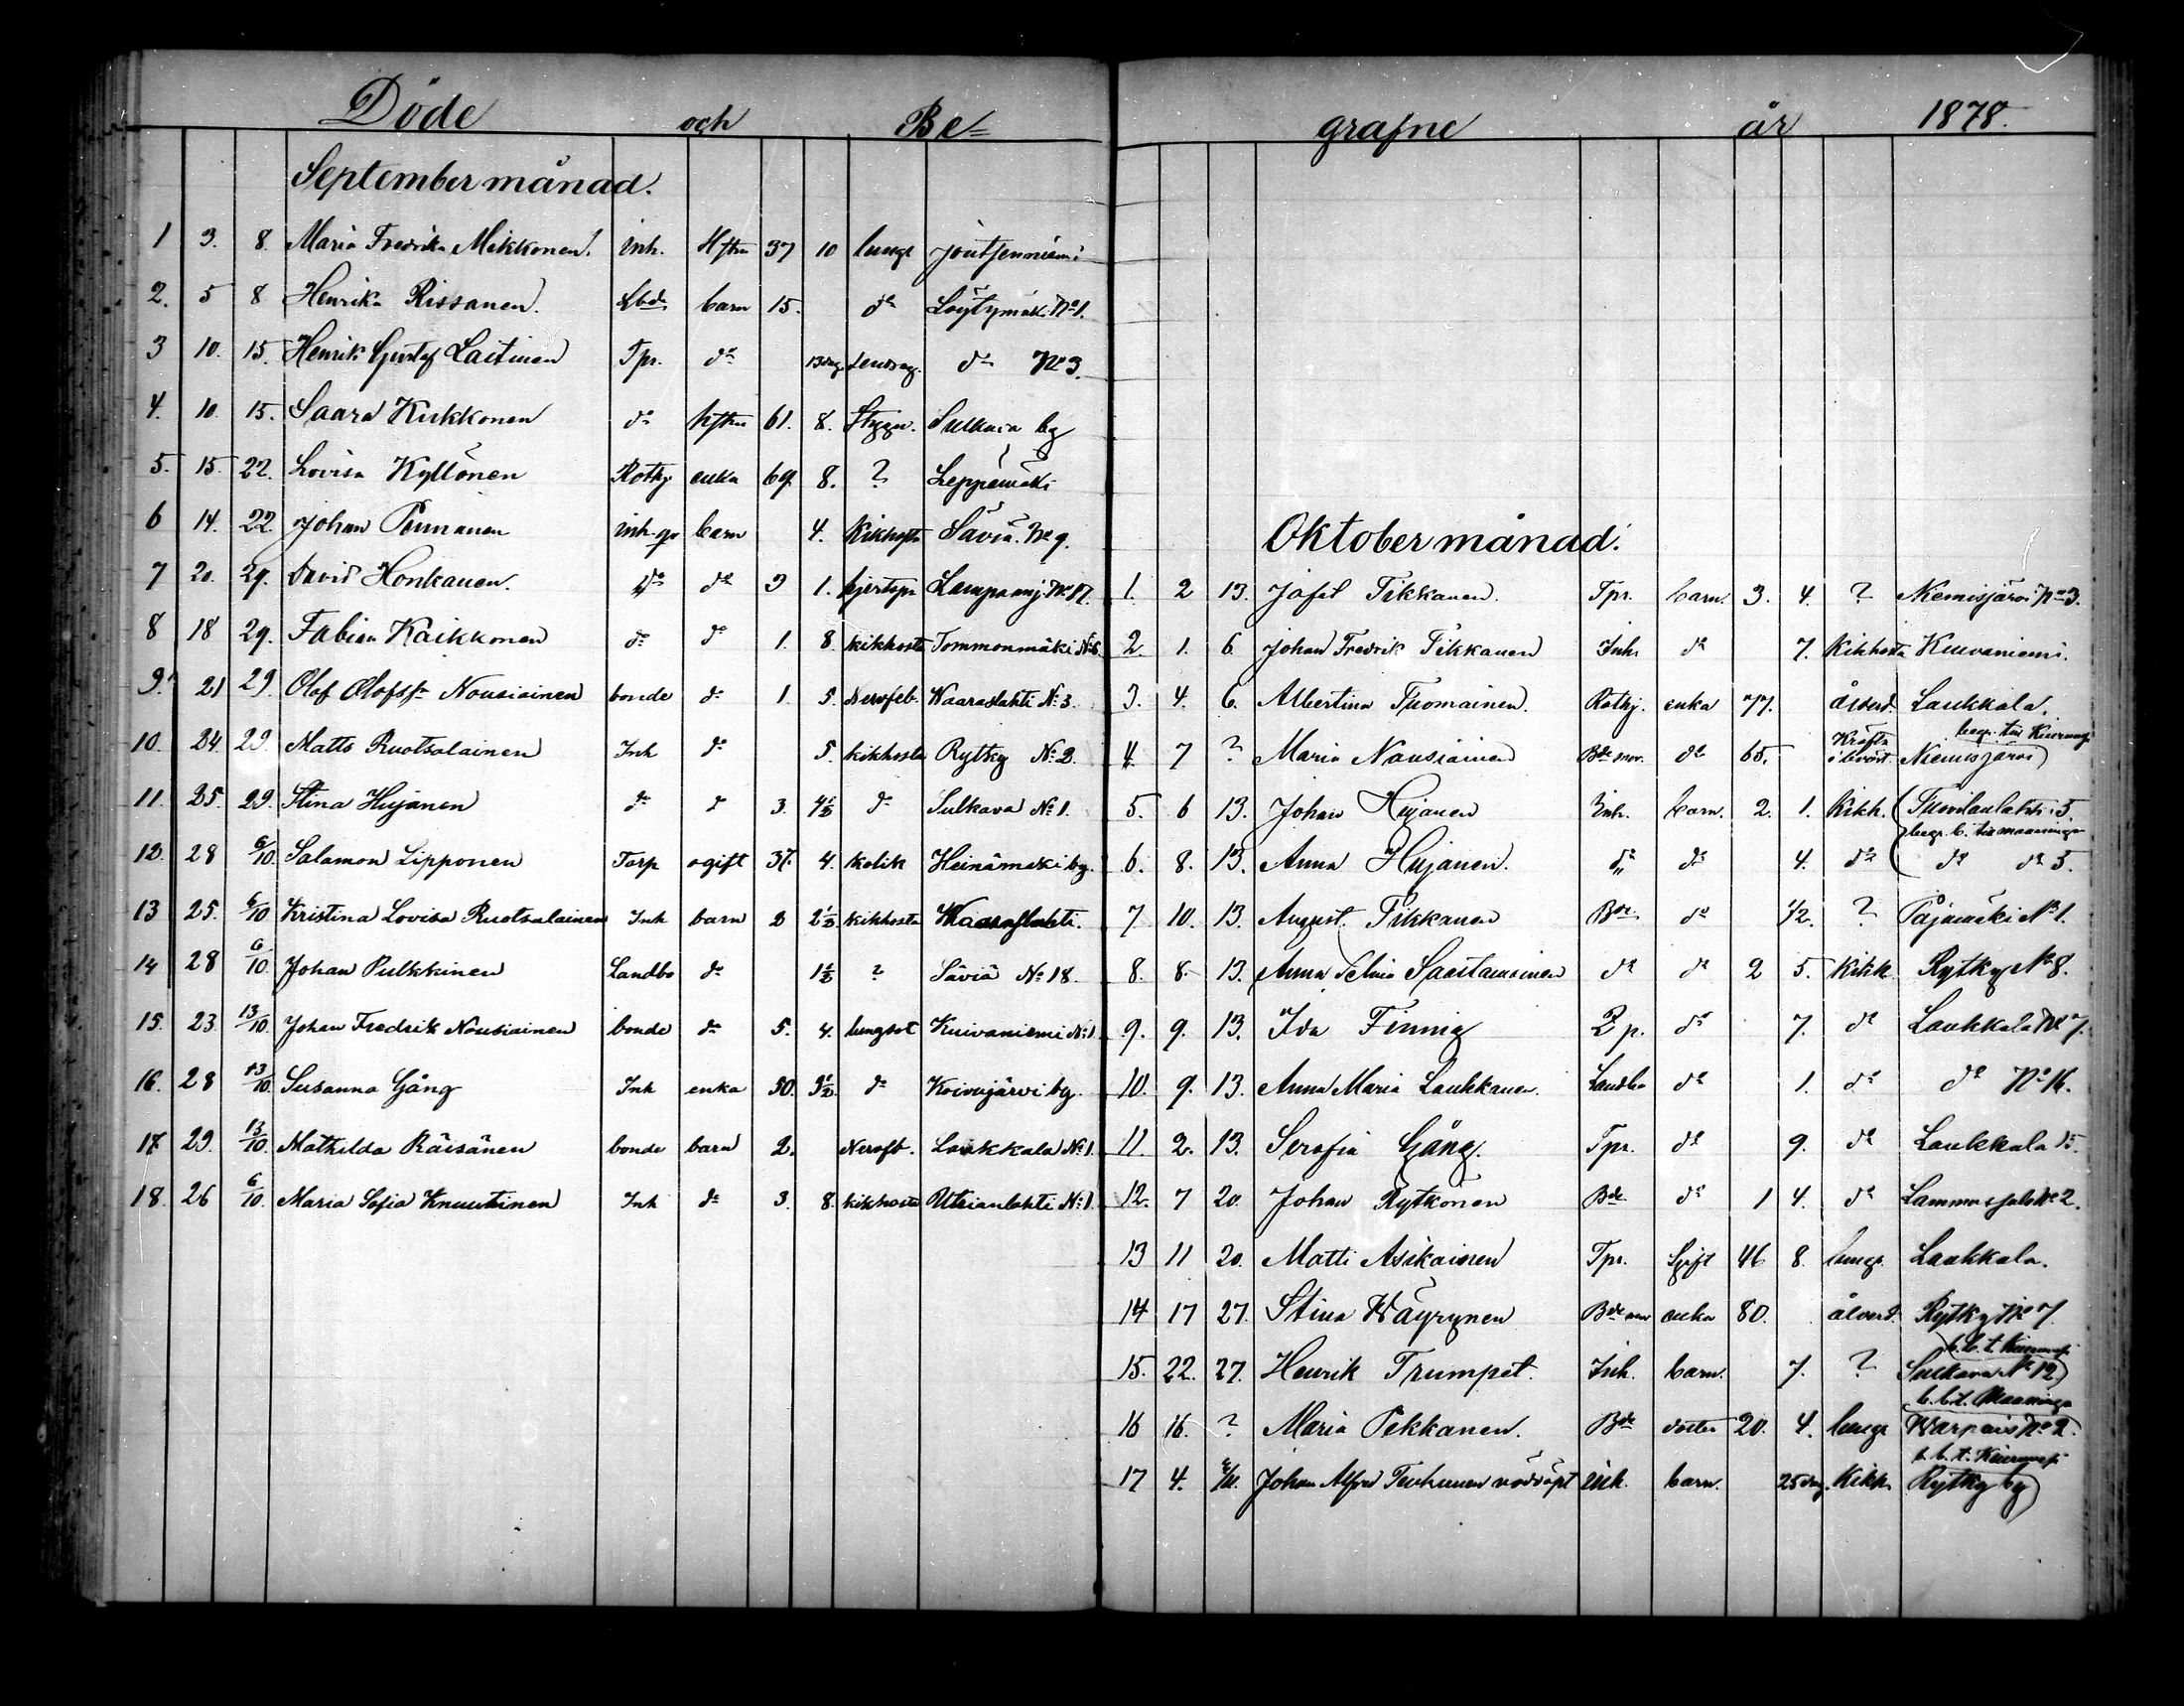 Döde och Be=
September månad.
1 3. 8. Maria Fredrika Mikkonen. inh. Hftru 37 10 lungs
2. 5 8 Henrika Rissanen. Lbde barn 15. do Löytymäki No 1.
3 10. 15. Henrik Gustaf Laitinen Tpr. do 13 dag. do No 3.
4. 10. 15. Saara Kukkonen do hftru 61. 8. Sulkava by
5. 15. 22. Lovisa Kyllönen Rothj enka 69 8. ? Leppämäki
6 14. 22. Johan Pennanen inh. barn 4. kikhosta Säviä No 9.
7 20. 29. David Honkanen. do do 3 1. No 17.
8 18 29. Fabian Kaikkonen do do 1. 8. kikhosta Tommonmäki No 6.
9. 21 29. Olof Olofss. Nousiainen bonde do 1. 5. Nervfeb. Waaraslahti No 3.
10. 24. 29. Matts Ruotsalainen Inh do 5. kikhosta Rytky No 2.
11. 25. 29. Stina Hujanen do d 3. 4½ do Sulkava No 1.
12. 28 6/10. Salamon Lipponen Torp ogift 37. 4. kolik Heinämäki by.
13 25. 6/10 Kristina Lovisa Ruotsalainen Inh barn 2 2½ kikhosta Waaraslahti.
14 28 6/10. Johan Pulkkinen Landbo do 1½ ? Säviä No 18.
15. 23. 13/10. Johan Fredrik Nousiainen bonde do 5. 4. lungsot Kuivaniemi No 1
16. 28 13/10. Susanna Gång Inh enka 50. 3½ do Koivujärvi by.
17. 29. 13/10. Mathilda Räisänen bonde barn 2. Nervfb. Laukkala No 1.
18. 26 6/10. Maria Sofia Knuutinen Inh do 3. 8. kikhosta Utrianlahti No 1.
grafne år 1878.
Oktober månad.
1. 2 13. Jafet Tikkanen. Tpr. barn. 3. 4. ? Niemisjärvi No 3.
2. 1. 6 Johan Fredrik Tikkanen Inh do 7. Kikhosta Kuivaniemi.
3. 4. 6. Albertina Tuomainen. Rothj. enka 77. ålderd. Laukkala.
4. 7 ? Maria Nousiainen Bde mor. do 65. Kräfta i bröst. Niemisjärvi
5. 6 13. Johan Hujanen Inh. barn. 2. 1. Kikh. 5.
6. 8. 13. Anna Hujanen. do do 4. do do do 5.
7 10. 13. August Tikkanen Bde do ½. ? Pajumäki No 1.
8. 8. 13. Anna Selma Saastamoinen do do 2 5. Kikh. Rytky No 8.
9. 9. 13. Ida Finnig do 7. do Laukkala No 7.
10. 9. 13. Anna Maria Laukkanen. Landbo do 1. do do No 16.
11. 2. 13. Serafia Gång. Tpr. do 9. do Laukkala 15.
12. 7 20. Johan Rytkönen Bde do 1 4. do No 2.
13 11 20. Matti Asikainen Tpr. gift 46 8. lungs. Laukkala.
14 17 27. Stina Wäyrynen Bde mor enka 80. ålderd. Rytky No 7.
15. 22. 27. Henrik Trumpet. Inh. barn. 7. ? Sulkava No 12)
16 16. ? Maria Pekkanen. Bde dotter 20. 4. lungs No 2.
17 4. Johan Alfred nöddöpt inh. barn. 25 dag. Kikh. Rytky by)